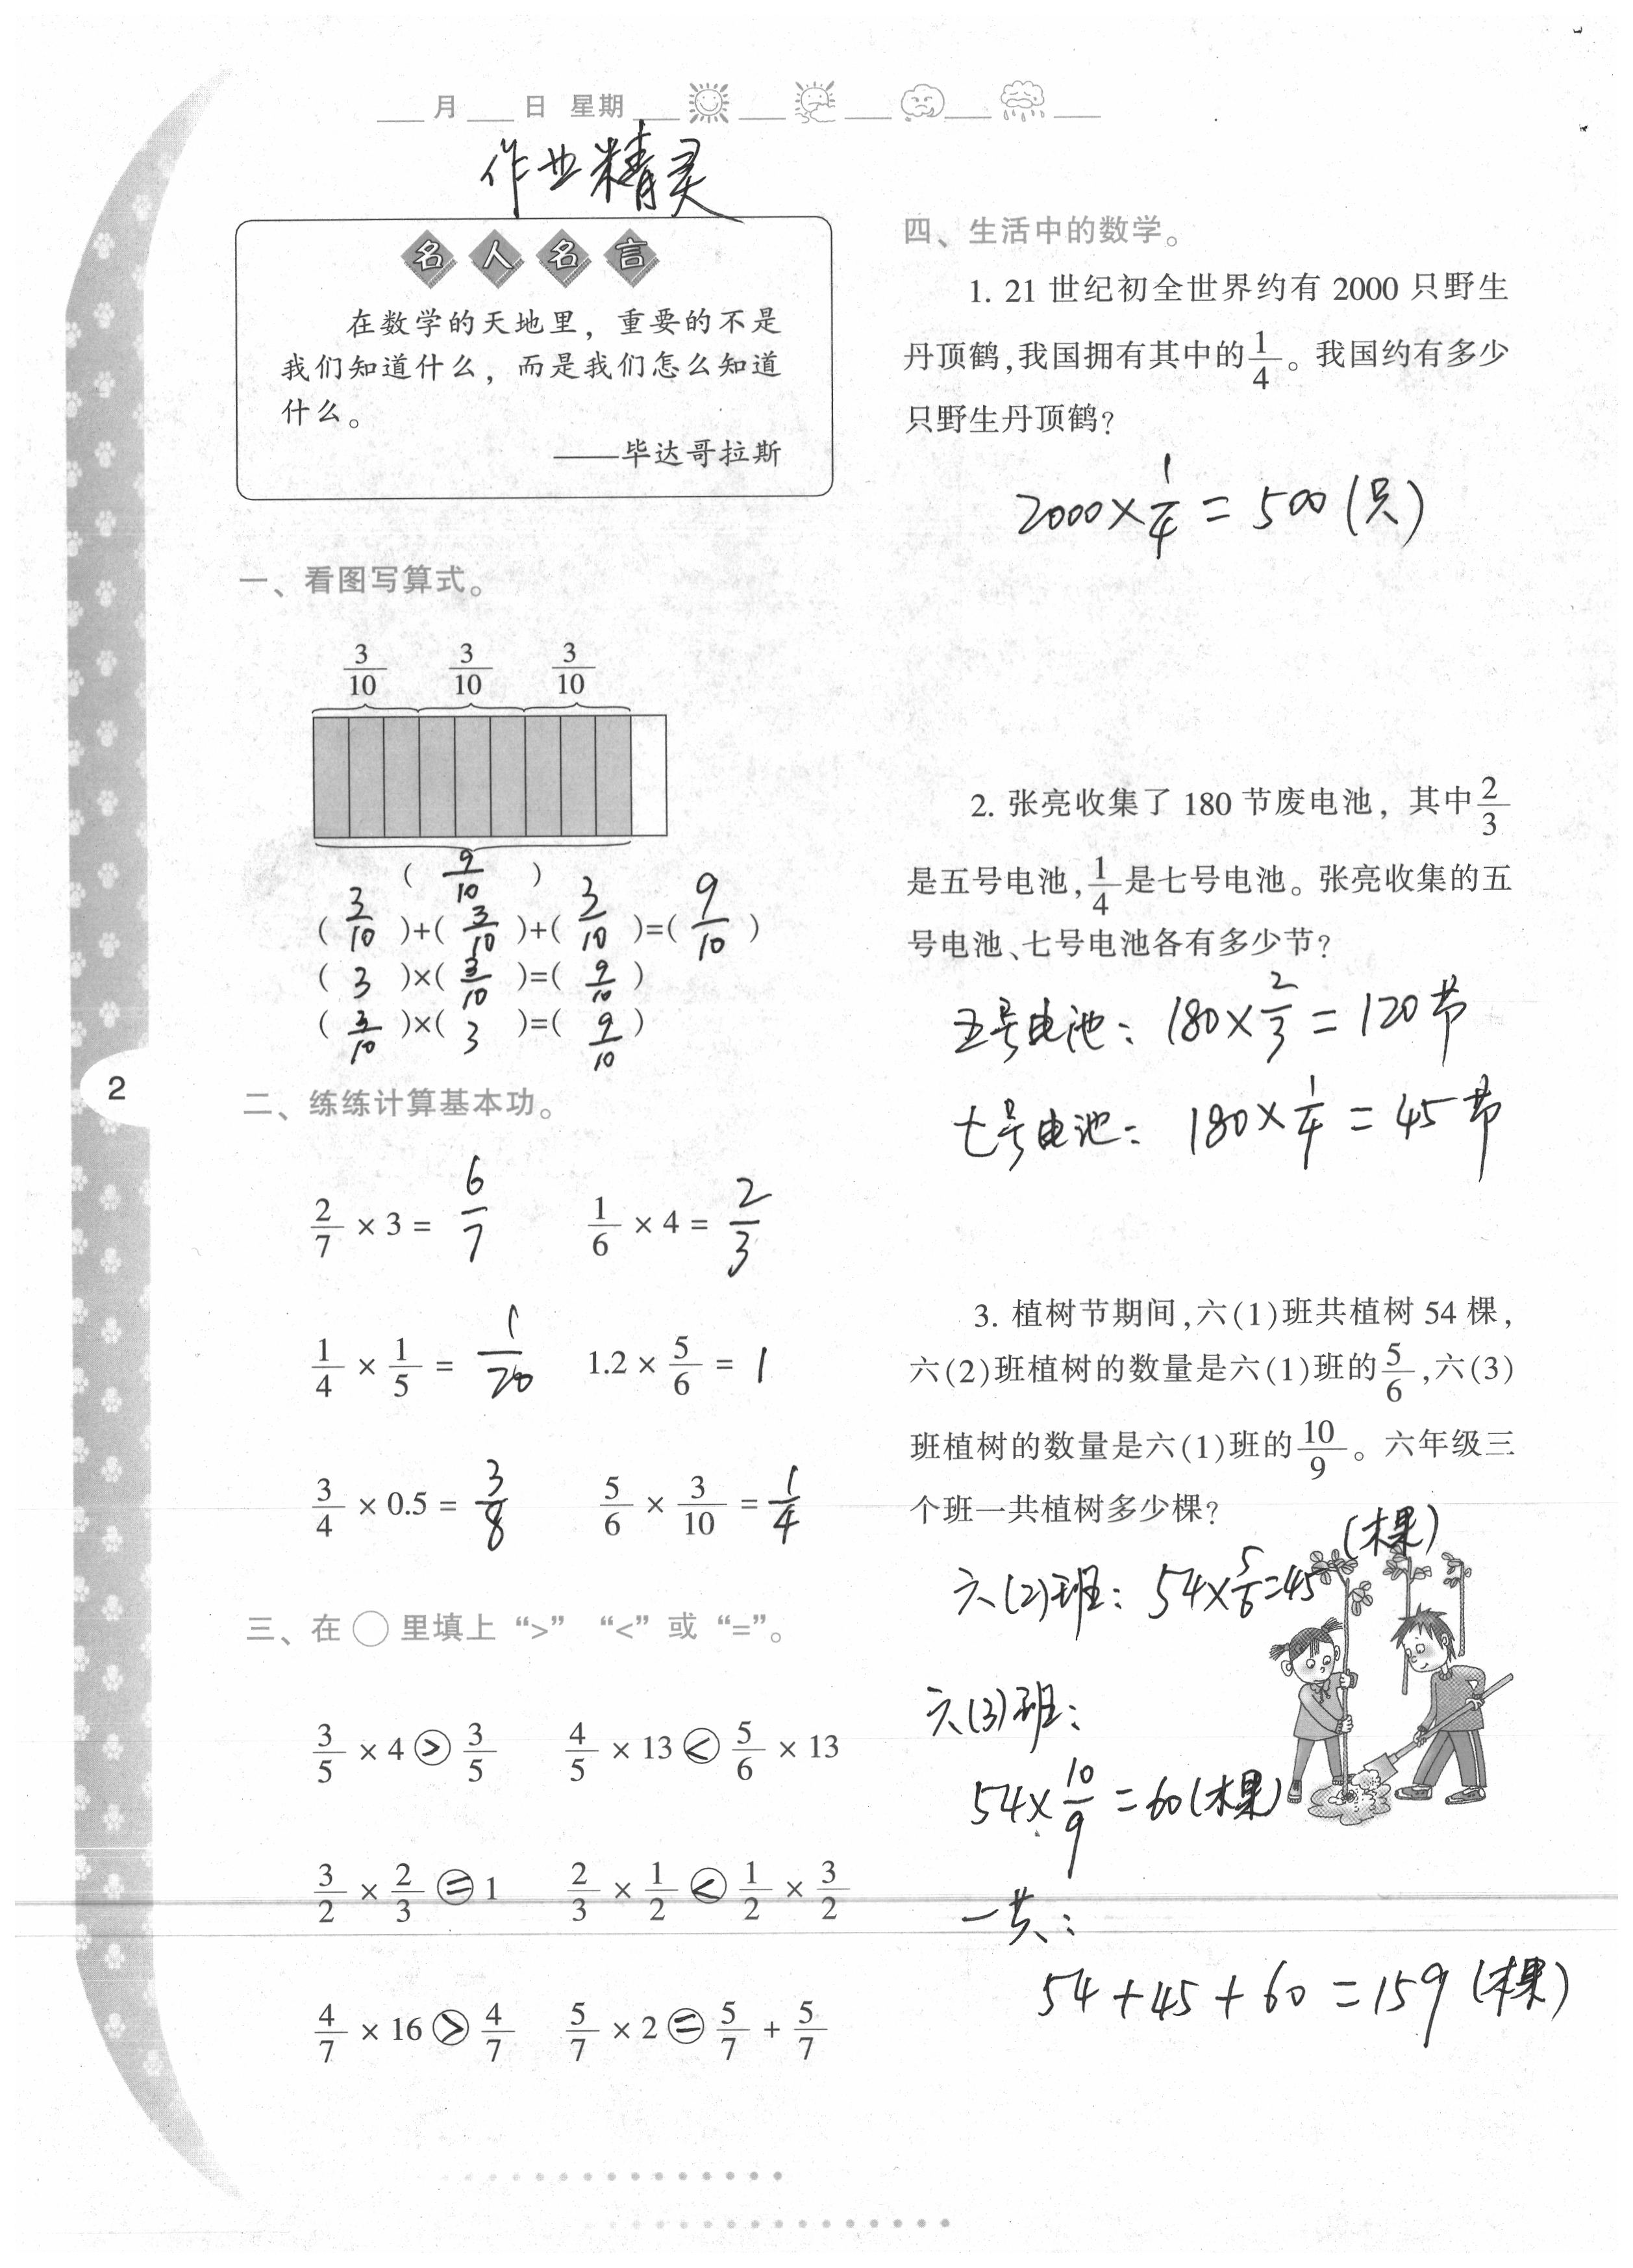 月 日 星期
作业精灵
名人名言
在数学的天地里，重要的不是
我们知道什么，而是我们怎么知道
什么。
——毕达哥拉斯
一、看图写算式。
3/10 3/10 3/10
( 9/10 )
( 3/10 )+( 3/10 )+( 3/10 )=( 9/10 )
( 3 )×( 3/10 )=( 9/10 )
( 3/10 )×( 3 )=( 9/10 )
2
二、练练计算基本功。
2/7 × 3 = 6/7 1/6 × 4 = 2/3
1/4 × 1/5 = 1/20 1.2 × 5/6 = 1
3/4 × 0.5 = 3/8 5/6 × 3/10 = 1/4
三、在○里填上“>”“<”或“=”。
3/5 × 4 > 3/5 4/5 × 13 < 5/6 × 13
3/2 × 2/3 = 1 2/3 × 1/2 < 1/2 × 3/2
4/7 × 16 > 4/7 5/7 × 2 = 5/7 + 5/7
四、生活中的数学。
1. 21 世纪初全世界约有 2000 只野生
丹顶鹤,我国拥有其中的1/4。我国约有多少
只野生丹顶鹤?
2000×1/4 = 500 (只)
2. 张亮收集了 180 节废电池，其中2/3
是五号电池,1/4是七号电池。张亮收集的五
号电池、七号电池各有多少节?
五号电池: 180×2/3 = 120节
七号电池: 180×1/4 = 45节
3. 植树节期间,六(1)班共植树 54 棵,
六(2)班植树的数量是六(1)班的5/6,六(3)
班植树的数量是六(1)班的10/9。六年级三
个班一共植树多少棵?
六(2)班: 54×5/6=45(棵)
六(3)班:
54×10/9 = 60(棵)
一共:
54+45+60=159(棵)